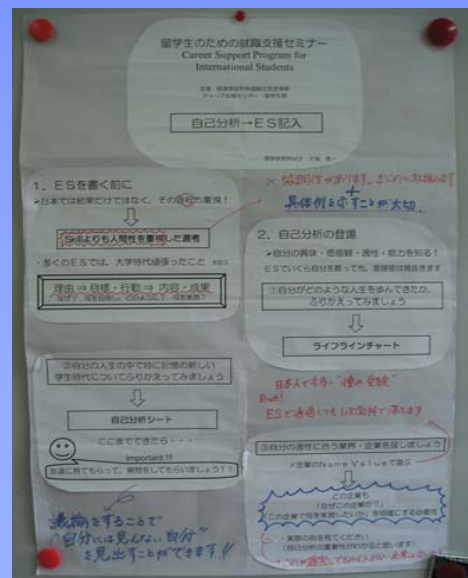 留学生のための就職支援セミナー
Career Support Program for
International Students
自己分析→ES記入
1. ESを書く前に
➢日本では結果だけではなく、その過程も重視!
よりも人間性を重視した選考
・多くのESでは、大学時代頑張ったこと
理由 ⇒ 目標・行動 ⇒ 内容・成果
具体例を示すことが大切。
2. 自己分析の登場
➢自分の興味・価値観・適性・能力を知る!
ESでいくら自分を飾っても、面接官は見抜きます
①自分がどのような人生を歩んできたか、
ふりかえってみましょう
ライフラインチャート
②自分の人生の中で特に記憶の新しい
学生時代についてふりかえってみましょう
自己分析シート
ここまでできたら・・・
Important !!!
友達に見てもらって、検討をしてもらいましょう!!
議論をすることで
"自分には見えない自分"
を見出すことができます!!
日本人でも多い
But!
ESで通過しても
③自分の適性に合う業界・企業を探しましょう
×企業のName Valueで選ぶ
どの企業も
「なぜこの企業か?」
「この企業で何を実現したいか」を明確にする必要性
・実際の例を見てください
(自己分析の重要性がわかると思います)